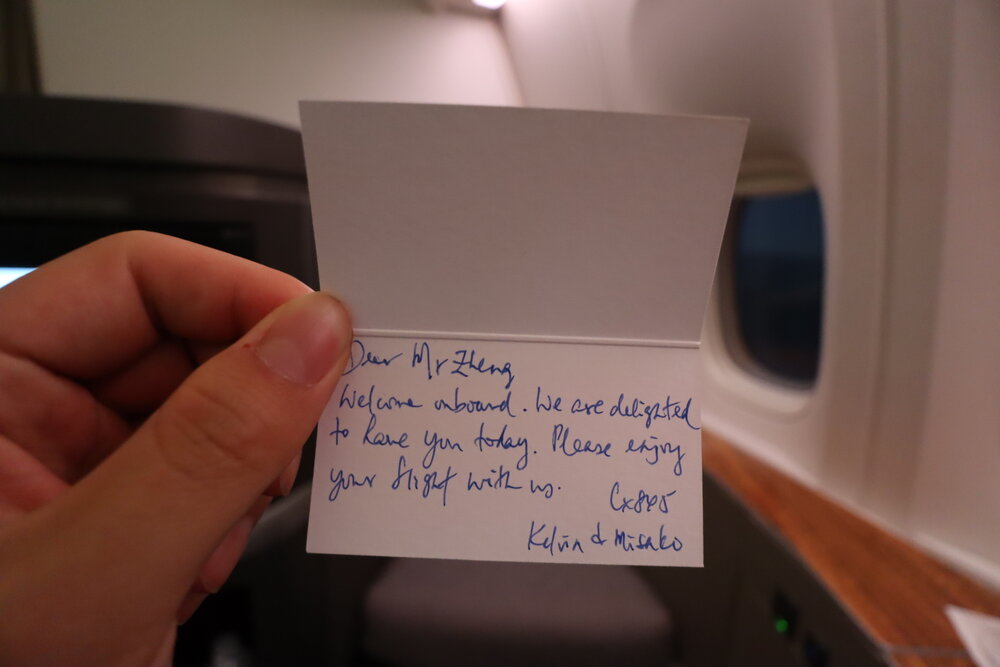 Dear Mr Zheng
Welcome onboard. We are delighted
to have you today. Please enjoy
your flight with us.
CX845
Kelvin & Misako